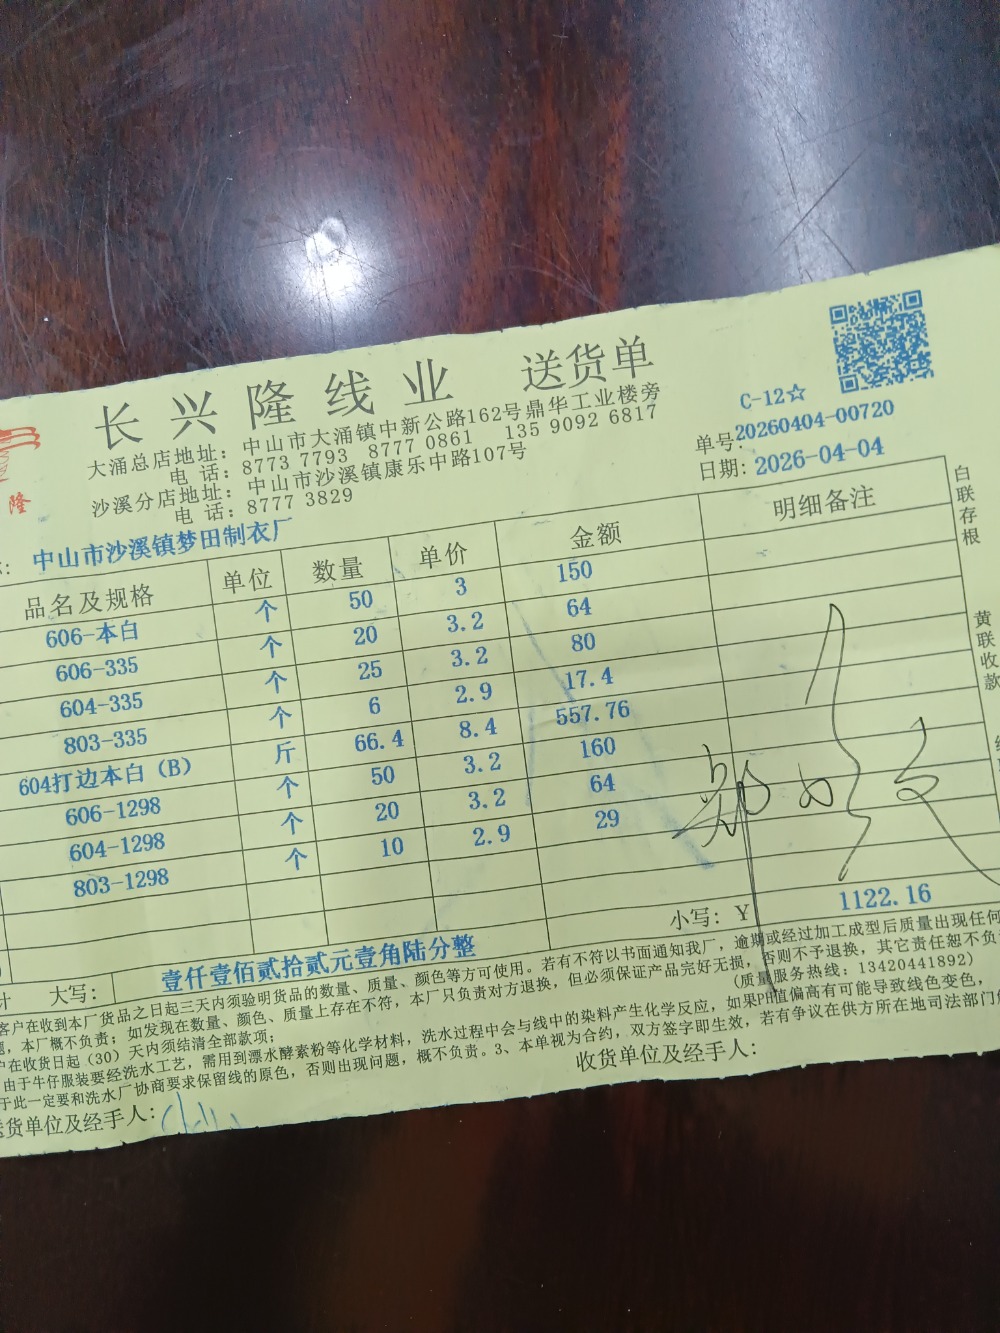 长兴隆线业 送货单
隆
大涌总店地址：中山市大涌镇中新公路162号鼎华工业楼旁
电 话：8773 7793 8777 0861 135 9092 6817
沙溪分店地址：中山市沙溪镇康乐中路107号
电 话：8777 3829
C-12☆
单号：20260404-00720
日期：2026-04-04
中山市沙溪镇梦田制衣厂
品名及规格 单位 数量 单价 金额 明细备注
606-本白 个 50 3 150
606-335 个 20 3.2 64
604-335 个 25 3.2 80
803-335 个 6 2.9 17.4
604打边本白（B） 斤 66.4 8.4 557.76
606-1298 个 50 3.2 160
604-1298 个 20 3.2 64
803-1298 个 10 2.9 29
小写：￥ 1122.16
计 大写： 壹仟壹佰贰拾贰元壹角陆分整
客户在收到本厂货品之日起三天内须验明货品的数量、质量、颜色等方可使用。若有不符以书面通知我厂，逾期或经过加工成型后质量出现任何
，本厂概不负责；如发现在数量、颜色、质量上存在不符，本厂只负责对方退换，但必须保证产品完好无损，否则不予退换，其它责任恕不负
在收货日起（30）天内须结清全部款项； （质量服务热线：13420441892）
由于牛仔服装要经洗水工艺，需用到漂水酵素粉等化学材料，洗水过程中会与线中的染料产生化学反应，如果PH值偏高有可能导致线色变色，
于此一定要和洗水厂协商要求保留线的原色，否则出现问题，概不负责。3、本单视为合约，双方签字即生效，若有争议在供方所在地司法部门
送货单位及经手人： 收货单位及经手人：
白联存根
黄联收款